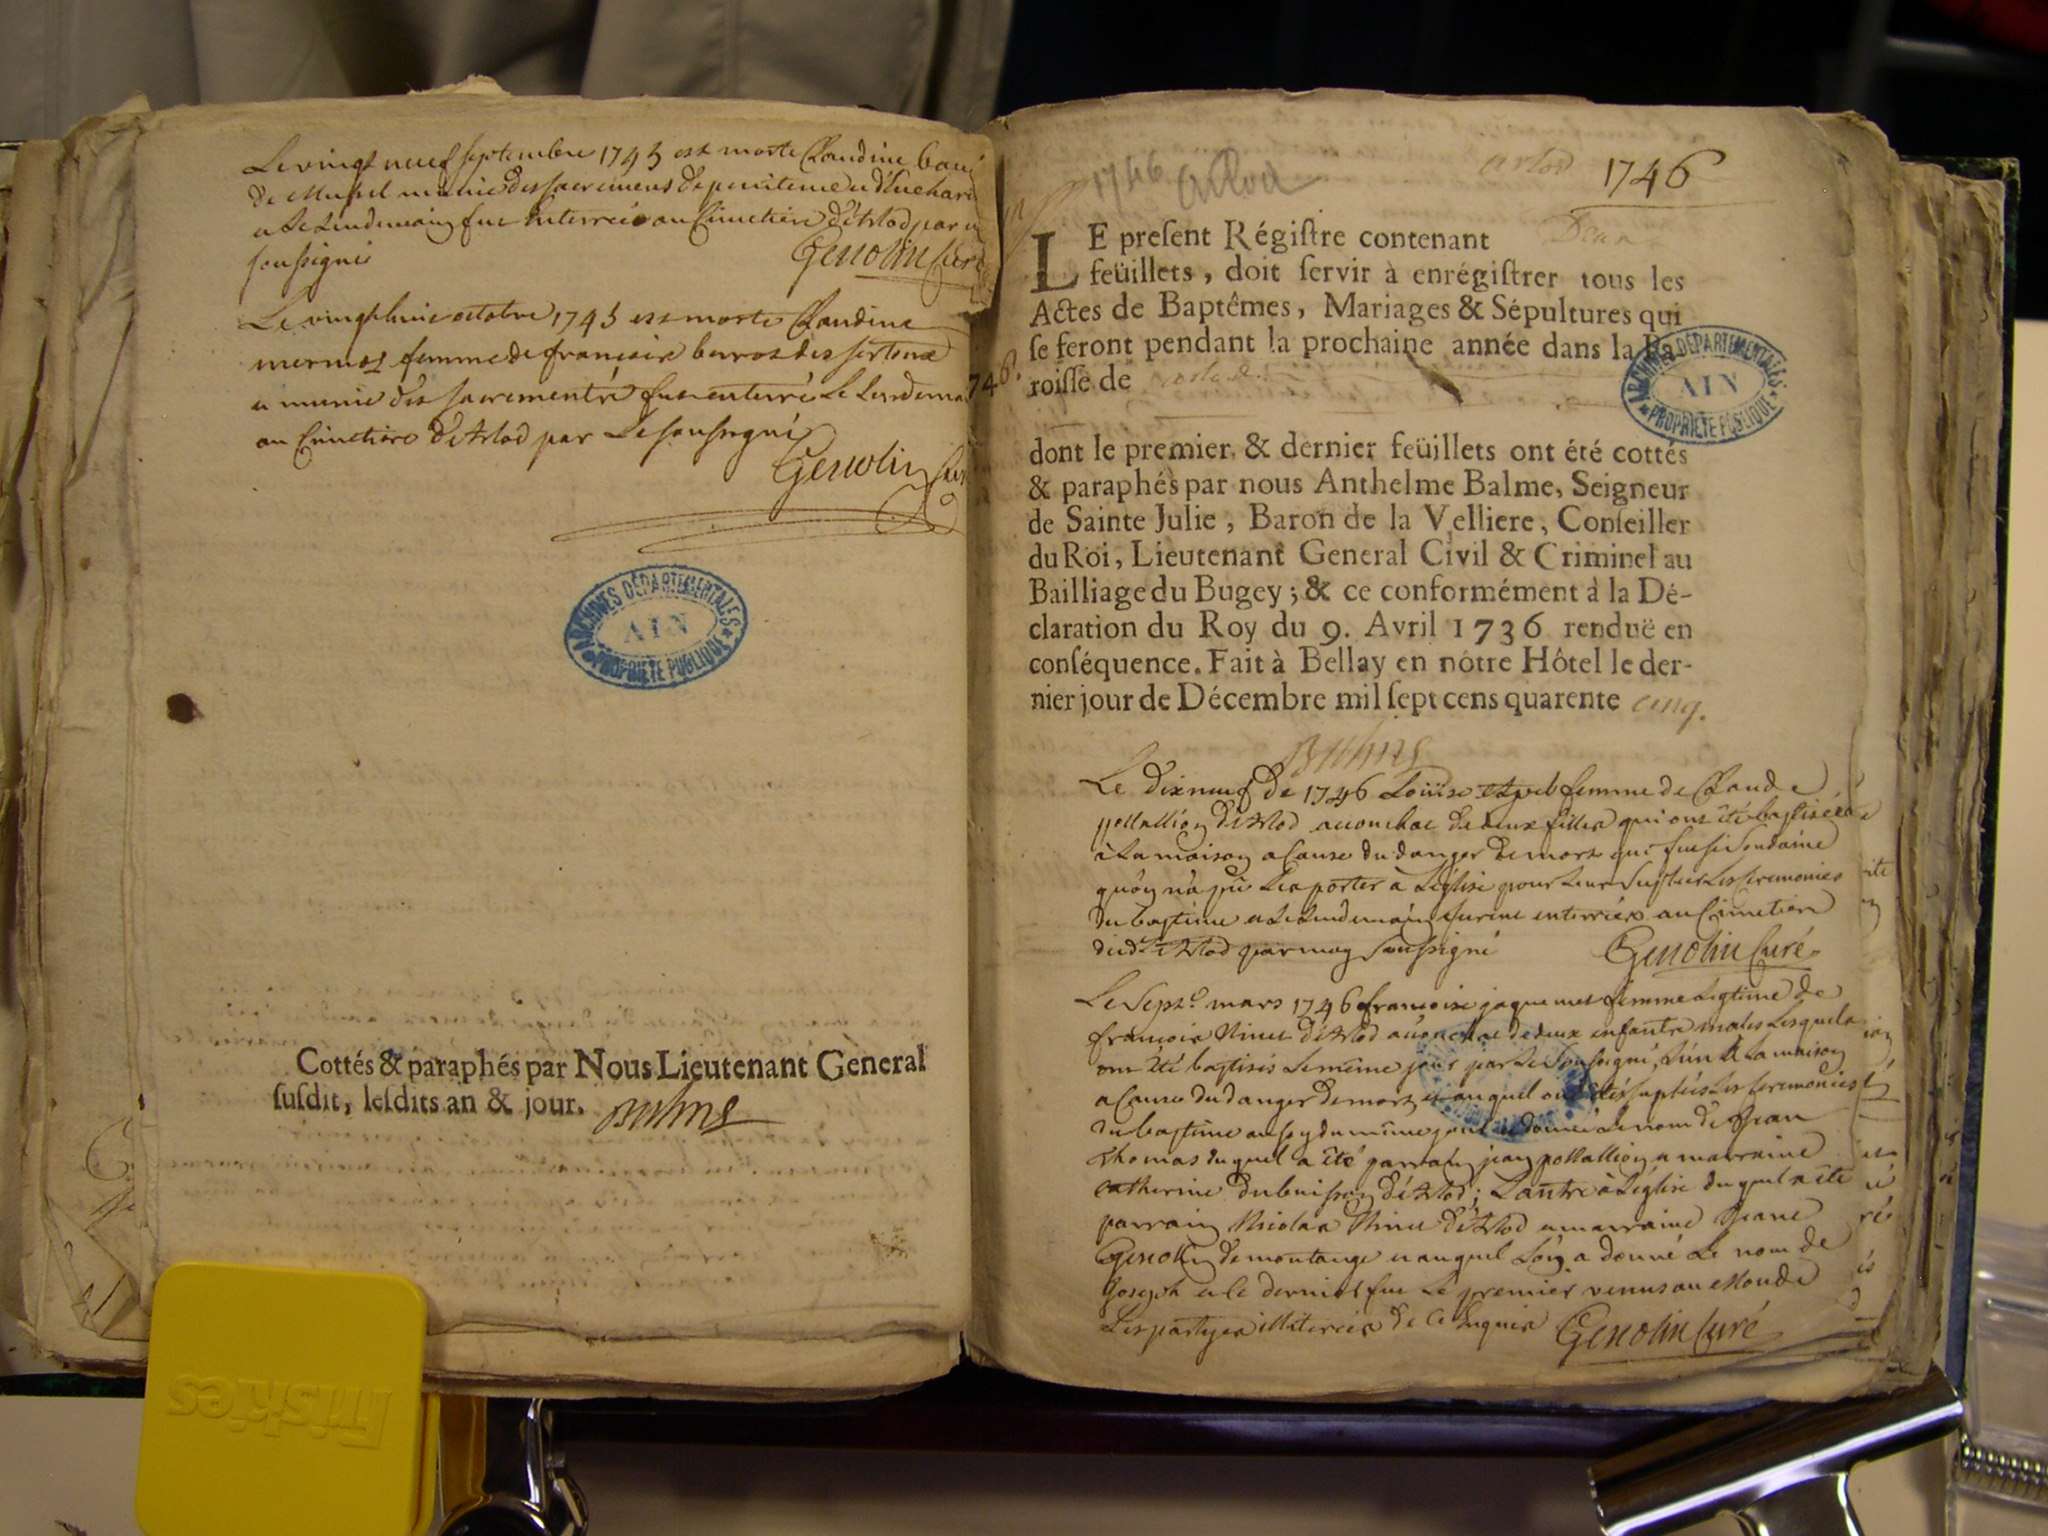 Le vingt neuf septembre 1745 est morte Claudine
de Musel munie des sacremens de penitence et d'Euchari
et le lendemain fut enterrée au Cimetiere d'Arlod par
soussigné Genolin Curé
Le vingthuit octobre 1745 est morte Claudine
mermoz femme de francois
et munie des sacrements fut enterré le lendemai
au Cimetiere d'Arlod par le soussigné
Genolin Curé
ARCHIVES DÉPARTEMENTALES
AIN
PROPRIÉTÉ PUBLIQUE
Cottés & paraphés par Nous Lieutenant General
susdit, lesdits an & jour. Balme
Friskies
1746 Arlod
arlod 1746
LE present Régistre contenant Deux
feüillets, doit servir à enrégistrer tous les
Actes de Baptêmes, Mariages & Sépultures qui
se feront pendant la prochaine année dans la Pa-
roisse de arlod
746
ARCHIVES DÉPARTEMENTALES
AIN
PROPRIÉTÉ PUBLIQUE
dont le premier & dernier feüillets ont été cottés
& paraphés par nous Anthelme Balme, Seigneur
de Sainte Julie, Baron de la Velliere, Conseiller
du Roi, Lieutenant General Civil & Criminel au
Bailliage du Bugey; & ce conformément à la Dé-
claration du Roy du 9. Avril 1736 renduë en
conséquence. Fait à Bellay en nôtre Hôtel le der-
nier jour de Décembre mil sept cens quarente cinq.
Balme
Le dixneuf de 1746 Loüise femme de Claude
pollallion d'Arlod accouchat de deux filles qui ont été baptisées
à la maison a Cause du danger de mort qui fut si soudaine
qu'on n'a pû les porter à L'eglise pour leur supleer les ceremonies
du baptême et le lendemain furent enterrées au Cimetiere
dud.t Arlod par moy soussigné Genolin Curé
Le sept.e mars 1746 francoise jaquemet femme legitime de
francois Ninet d'Arlod accouchat de deux enfants males lesquels
ont été baptisés le même jour par le soussigné, l'un à la maison
a Cause du danger de mort et auquel ont été supleés les ceremonies
du baptême aussy du même jour et donné le nom de Jean
Thomas duquel a été parrain jean pollallion et marraine
Catherine dubuisson d'Arlod; L'autre à L'eglise duquel a été
parrain Nicolas Ninet d'Arlod et marraine Jeane
Genolin de montange et auquel l'on a donné le nom de
Joseph et le dernier fut le premier venus au Monde
Les parties illiterées de ce enquises Genolin Curé